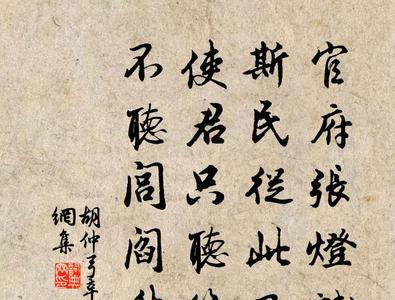 官府張燈
斯民從此
使君只聽
不聽閭閻
胡仲弓章
網集